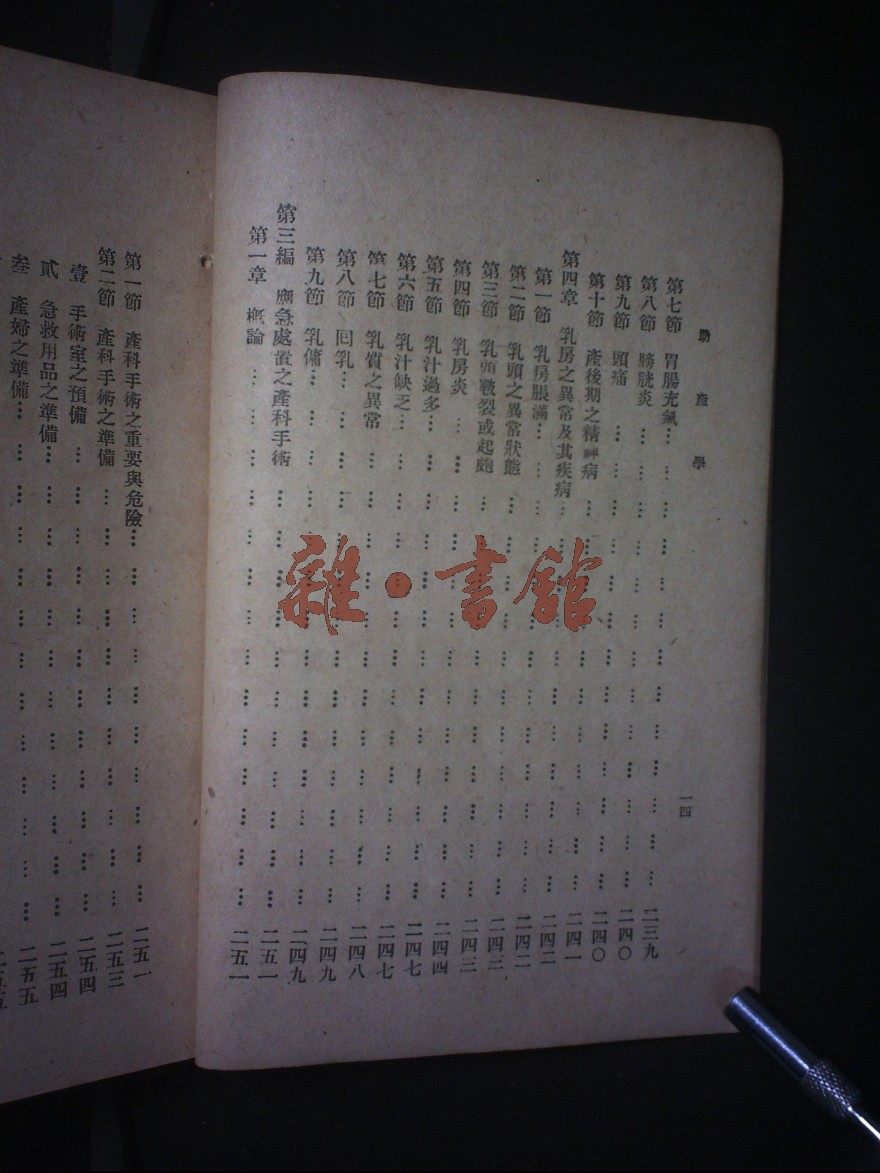 助產學
一四
第七節 胃腸充氣 二三九
第八節 膀胱炎 二四〇
第九節 頭痛 二四〇
第十節 產後期之精神病 二四一
第四章 乳房之異常及其疾病 二四二
第一節 乳房脹滿 二四二
第二節 乳頭之異常狀態 二四三
第三節 乳頭皸裂或起皰 二四三
第四節 乳房炎 二四四
第五節 乳汁過多 二四七
第六節 乳汁缺乏 二四七
第七節 乳質之異常 二四八
第八節 回乳 二四九
第九節 乳傭 二四九
第三編 應急處置之產科手術 二五一
第一章 概論 二五一
第一節 產科手術之重要與危險 二五一
第二節 產科手術之準備 二五三
壹 手術室之預備 二五四
貳 急救用品之準備 二五四
叁 產婦之準備 二五五
二五五
雜·書館